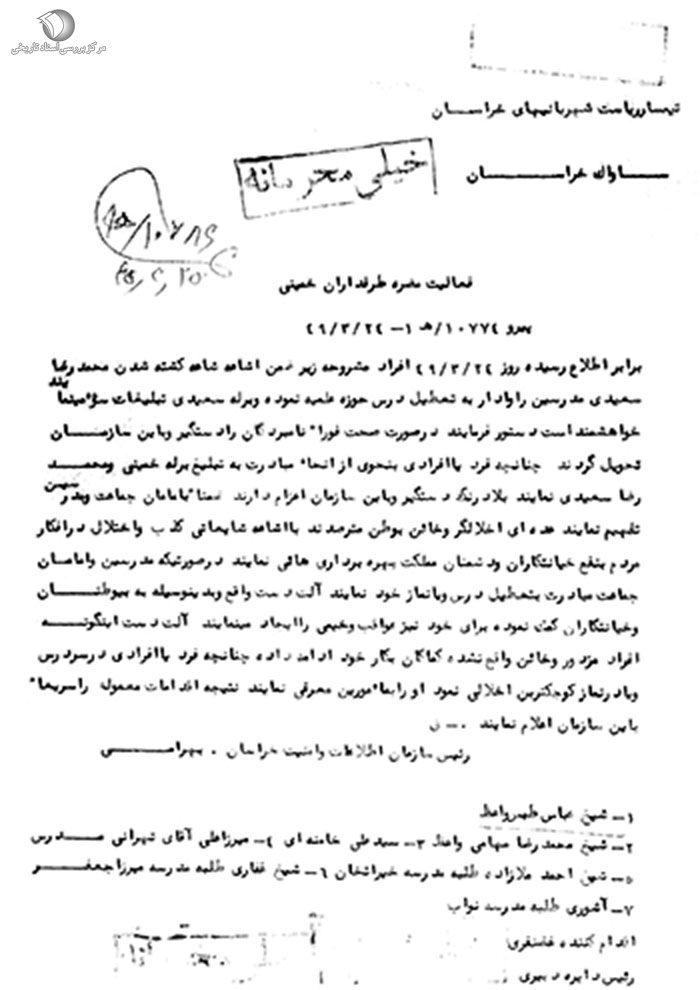 مرکز بررسی اسناد تاریخی
تیمسار ریاست شهربانیهای خراسان
ساواک خراسان
خیلی محرمانه
فعالیت مضره طرفداران خمینی
پیرو ۱۰۷۷۴/هـ ۱- ۴۹/۳/۲۴
برابر اطلاع رسیده روز ۴۹/۳/۲۴ افراد مشروحه زیر ضمن اشاعه شایعه کشته شدن محمدرضا
سعیدی مدرسین را وادار به تعطیل درس حوزه علمیه نموده و برله سعیدی تبلیغات سوء مینمایند
خواهشمند است دستور فرمایند درصورت صحت فورا" نامبردگان را دستگیر و باین سازمان
تحویل گردند چنانچه فرد یا افرادی بنحوی از انحاء مبادرت به تبلیغ برله خمینی و محمد
رضا سعیدی نمایند بلادرنگ دستگیر و باین سازمان اعزام دارند ضمنا" بامامان جماعت و مدرسین
تفهیم نمایند عده ای اخلالگر و خائن بوطن مترصدند با اشاعه شایعاتی کذب و اختلال در افکار
مردم بنفع خیانتکاران و دشمنان مملکت بهره برداری هائی نمایند درصورتیکه مدرسین و امامان
جماعت مبادرت بتعطیل درس و یا نماز خود نمایند آلت دست واقع و بدینوسیله به بیوطنان
و خیانتکاران کمک نموده برای خود نیز عواقب وخیمی را ایجاد مینمایند آلت دست اینگونه
افراد مزدور و خائن واقع نشده کماکان بکار خود ادامه داده چنانچه فرد یا افرادی در سر درس
و یا در نماز کوچکترین اخلالی نمود او را بمامورین معرفی نمایند نتیجه اقدامات معموله را سریعا"
باین سازمان اعلام نمایند .
رئیس سازمان اطلاعات و امنیت خراسان . بهرامی
۱- شیخ عباس طبسی واعظ
۲- شیخ محمد رضا مهامی واعظ ۳- سید علی خامنه ای ۴- میرزا علی آقای تهرانی مدرس
۵- شیخ احمد ملازاده طلبه مدرسه خیراتخان ۶- شیخ غفاری طلبه مدرسه میرزا جعفر
۷- آشوری طلبه مدرسه نواب
اقدام کننده غضنفری
رئیس دایره دبیری